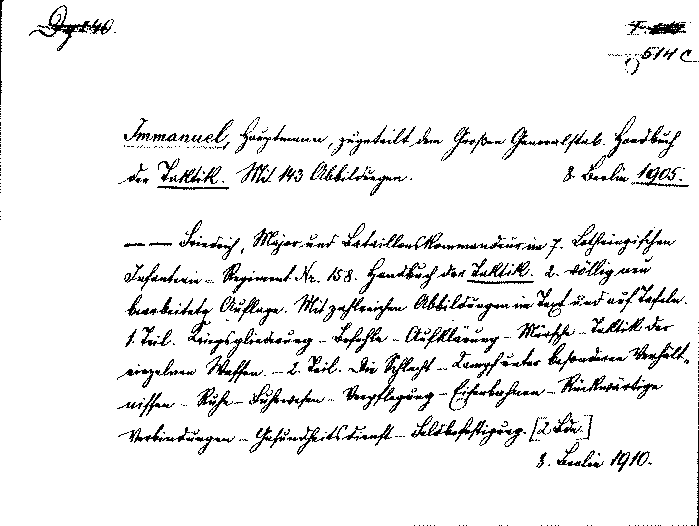 514 c
Immanuel, Hauptmann, zugeteilt dem Großen Generalstab. Handbuch
der Taktik. Mit 143 Abbildungen. 8. Berlin 1905.
— — Friedrich, Major und Bataillonskommandeur im 7. Lothringischen
Infanterie-Regiment Nr. 158. Handbuch der Taktik. 2. völlig neu
bearbeitete Auflage. Mit zahlreichen Abbildungen im Text und auf Tafeln.
1. Teil. Kriegsgliederung - Befehle - Aufklärung - Märsche - Taktik der
einzelnen Waffen. - 2. Teil. Die Schlacht - Kampf unter besonderen Verhält-
nissen - Ruhe - Verpflegung - Eisenbahnen - Rückwärtige
Verbindungen - Gesundheitsdienst - Feldbefestigung. [2 Bde.]
8. Berlin 1910.